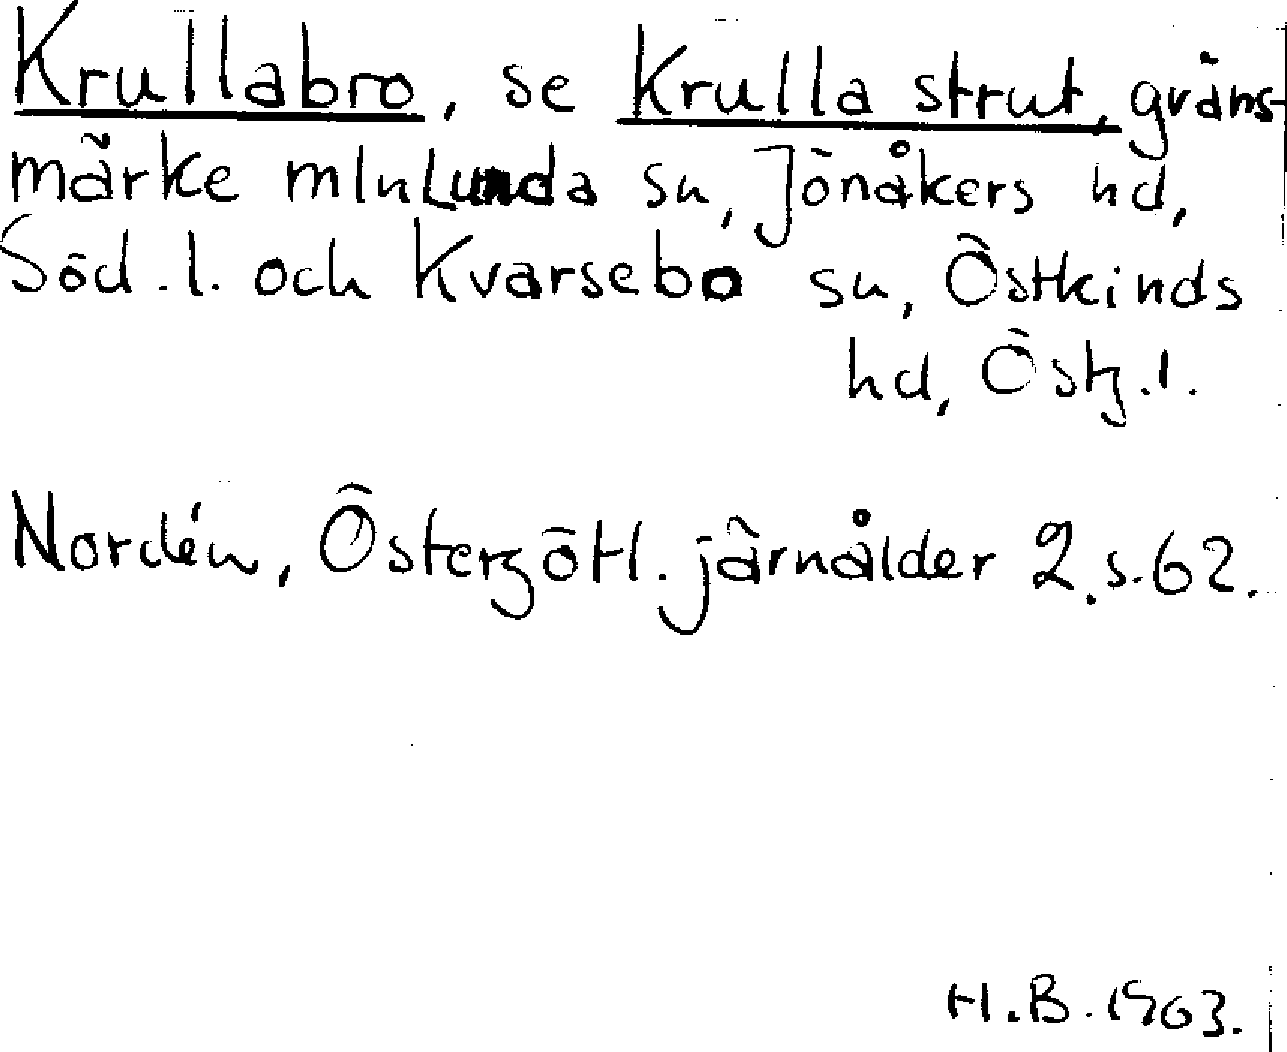 Krullabro, se Krulla strut, gräns-
märke mln Lunda sn, Jönåkers hd,
Söd.l. och Kvarsebo sn, Östkinds
hd, Östg.l.
Nordén, Östergötl. järnålder 2.s.62.
H.B. 1963.